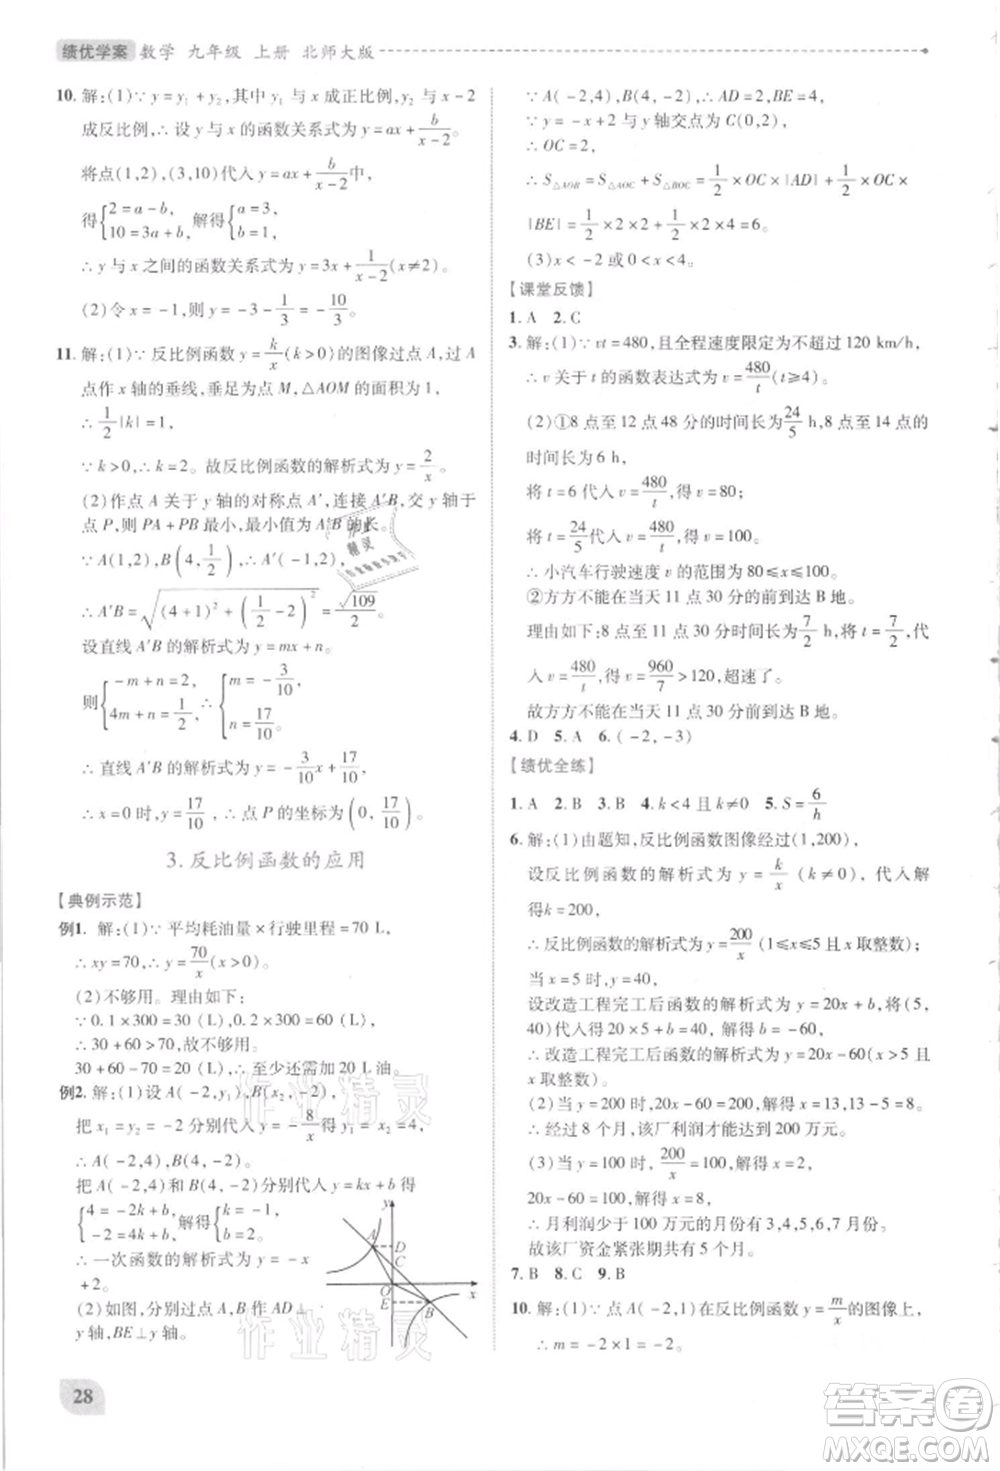 绩优学案 数学 九年级 上册 北师大版
10. 解:(1)∵ y=y₁+y₂,其中y₁与x成正比例,y₂与x-2
成反比例,∴设y与x的函数关系式为y=ax+b/(x-2)。
将点(1,2),(3,10)代入y=ax+b/(x-2)中,
得{2=a-b, 10=3a+b,解得{a=3, b=1。
∴ y与x之间的函数关系式为y=3x+1/(x-2)(x≠2)。
(2)令x=-1,则y=-3-1/3=-10/3。
11. 解:(1)∵反比例函数y=k/x(k>0)的图像过点A,过A
点作x轴的垂线,垂足为点M,△AOM的面积为1,
∴ 1/2|k|=1。
∵ k>0,∴ k=2。故反比例函数的解析式为y=2/x。
(2)作点A关于y轴的对称点A′,连接A′B,交y轴于
点P,则PA+PB最小,最小值为A′B的长。
∵ A(1,2),B(4,1/2),∴ A′(-1,2),
∴ A′B=√((4+1)²+(1/2-2)²)=√109/2。
设直线A′B的解析式为y=mx+n。
则{-m+n=2, 4m+n=1/2,∴{m=-3/10, n=17/10。
∴直线A′B的解析式为y=-3/10x+17/10。
∴ x=0时,y=17/10,∴点P的坐标为(0,17/10)。
3. 反比例函数的应用
【典例示范】
例1. 解:(1)∵平均耗油量×行驶里程=70 L,
∴ xy=70,∴ y=70/x(x>0)。
(2)不够用。理由如下:
∵ 0.1×300=30(L),∴ 0.2×300=60(L)。
∵ 30+60>70,∴不够用。
30+60-70=20(L),∴至少还需加20 L油。
例2. 解:(1)设A(-2,y₁),B(x₂,-2),
把x₁=y₂=-2代入y=-8/x得y₁=x₂=4,
∴ A(-2,4),B(4,-2)。
把A(-2,4)和B(4,-2)分别代入y=kx+b得
{4=-2k+b, -2=4k+b,解得{k=-1, b=2。
∴一次函数的解析式为y=-x
+2。
(2)如图,分别过点A,B作AD⊥
y轴,BE⊥y轴,
y
A D
O x
E B
28
∵ A(-2,4),B(4,-2),∴ AD=2,BE=4,
∵ y=-x+2与y轴交点为C(0,2),
∴ OC=2,
∴ S△AOB=S△AOC+S△BOC=1/2×OC×|AD|+1/2×OC×
|BE|=1/2×2×2+1/2×2×4=6。
(3)x<-2或0<x<4。
【课堂反馈】
1. A 2. C
3. 解:(1)∵ vt=480,且全程速度限定为不超过120 km/h,
∴ v关于t的函数表达式为v=480/t(t≥4)。
(2)①8点至12点48分的时间长为24/5 h,8点至14点
的时间长为6 h,
将t=6代入v=480/t,得v=80;
将t=24/5代入v=480/t,得v=100。
∴小汽车行驶速度v的范围为80≤v≤100。
②方方不能在当天11点30分的前到达B地。
理由如下:8点至11点30分时间长为7/2 h,将t=7/2代
入v=480/t得v=960/7>120,超速了。
故方方不能在当天11点30分前到达B地。
4. D 5. A 6. (-2,-3)
【绩优全练】
1. A 2. B 3. B 4. k<4且k≠0 5. S=6/h
6. 解:(1)由题知,反比例函数图像经过(1,200),
设反比例函数的解析式为y=k/x(k≠0),代入
解得k=200,
∴反比例函数的解析式为y=200/x(1≤x≤5且x取整数)。
当x=5时,y=40,
设改造工程完工后函数的解析式为y=20x+b,将(5,
40)代入得b=-60,
∴改造工程完工后函数的解析式为y=20x-60(x>5
且x取整数)。
(2)当y=200时,20x-60=200,解得x=13。13-5=8。
∴经过8个月,该厂利润才能达到200万元。
(3)当y=100时,200/x=100,解得x=2,
20x-60=100,解得x=8,
∴月利润少于100万元的月份有3,4,5,6,7月份,
故该厂资金紧张期共有5个月。
7. B 8. C 9. B
10. 解:(1)∵点A(-2,1)在反比例函数y=m/x的图像上,
∴ m=-2×1=-2。
作业精灵
作业精灵
作业精灵
答案圈
MXQE.COM